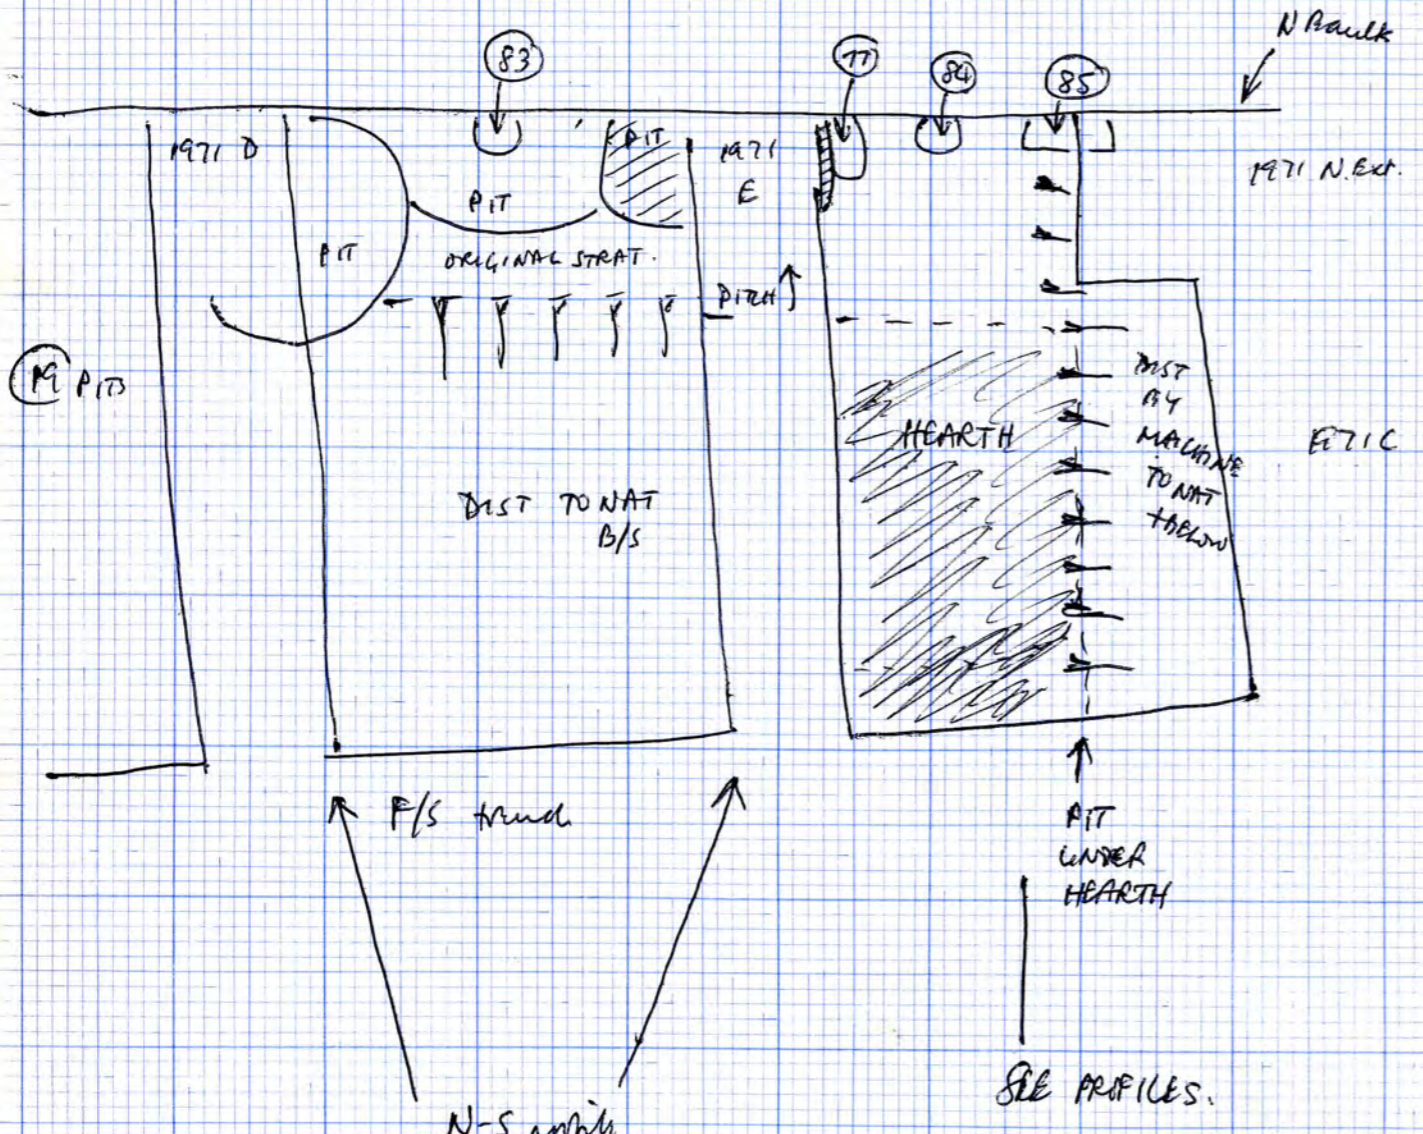 N Baulk
83
77
84
85
1971 D
PIT
1971
E
1971 N. Ext.
PIT
PIT
ORIGINAL STRAT.
PITCH
19 PITS
HEARTH
DIST
BY
MACHINE
TO NAT
+BELOW
E71C
DIST TO NAT
B/S
F/S trench
PIT
UNDER
HEARTH
SEE PROFILES.
N-S